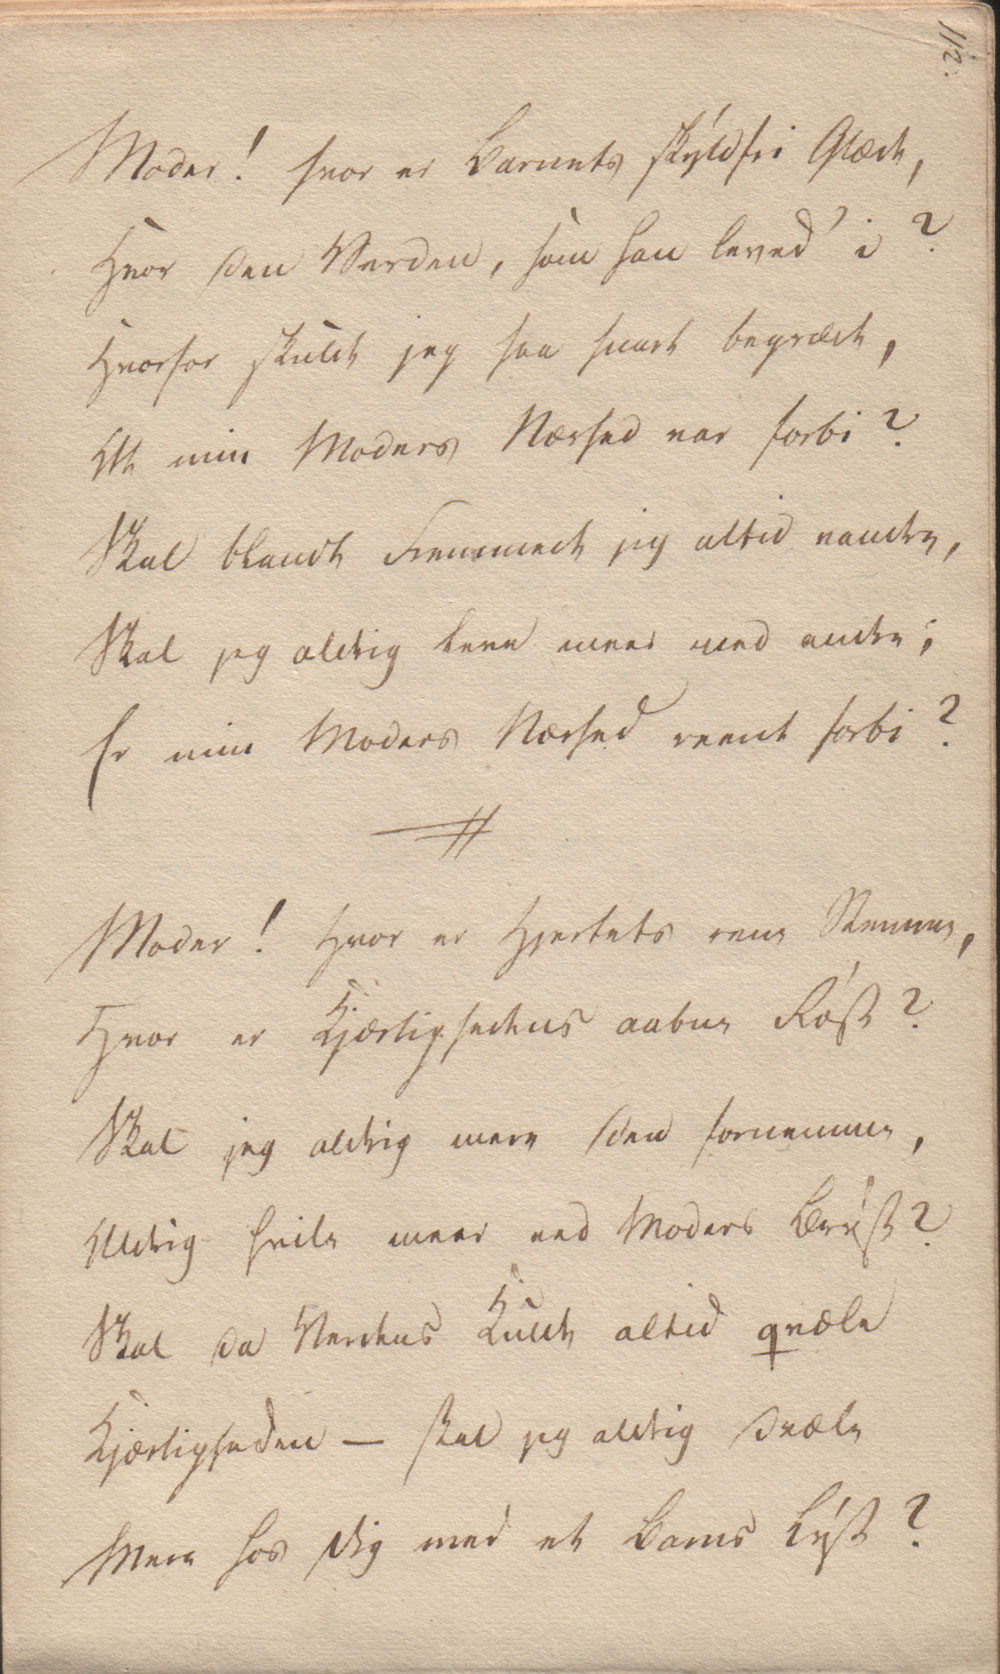 112.
Moder! hvor er Barnets skyldfri Glæde,
Hvor den Verden, som han leved' i?
Hvorfor skulde jeg saa snart begræde,
At min Moders Nærhed var forbi?
Skal blandt Fremmede jeg altid vandre,
Skal jeg aldrig leve meer ved andre;
Er min Moders Nærhed reent forbi?
Moder! Hvor er Hjertets rene Stemme,
Hvor er Kjærlighedens aabne Røst?
Skal jeg aldrig mere den fornemme,
Aldrig hvile meer ved Moders Bryst?
Skal da Verdens Kulde altid qvæle
Kjærligheden — skal jeg aldrig dvæle
Mere hos dig med et Barns Lyst?